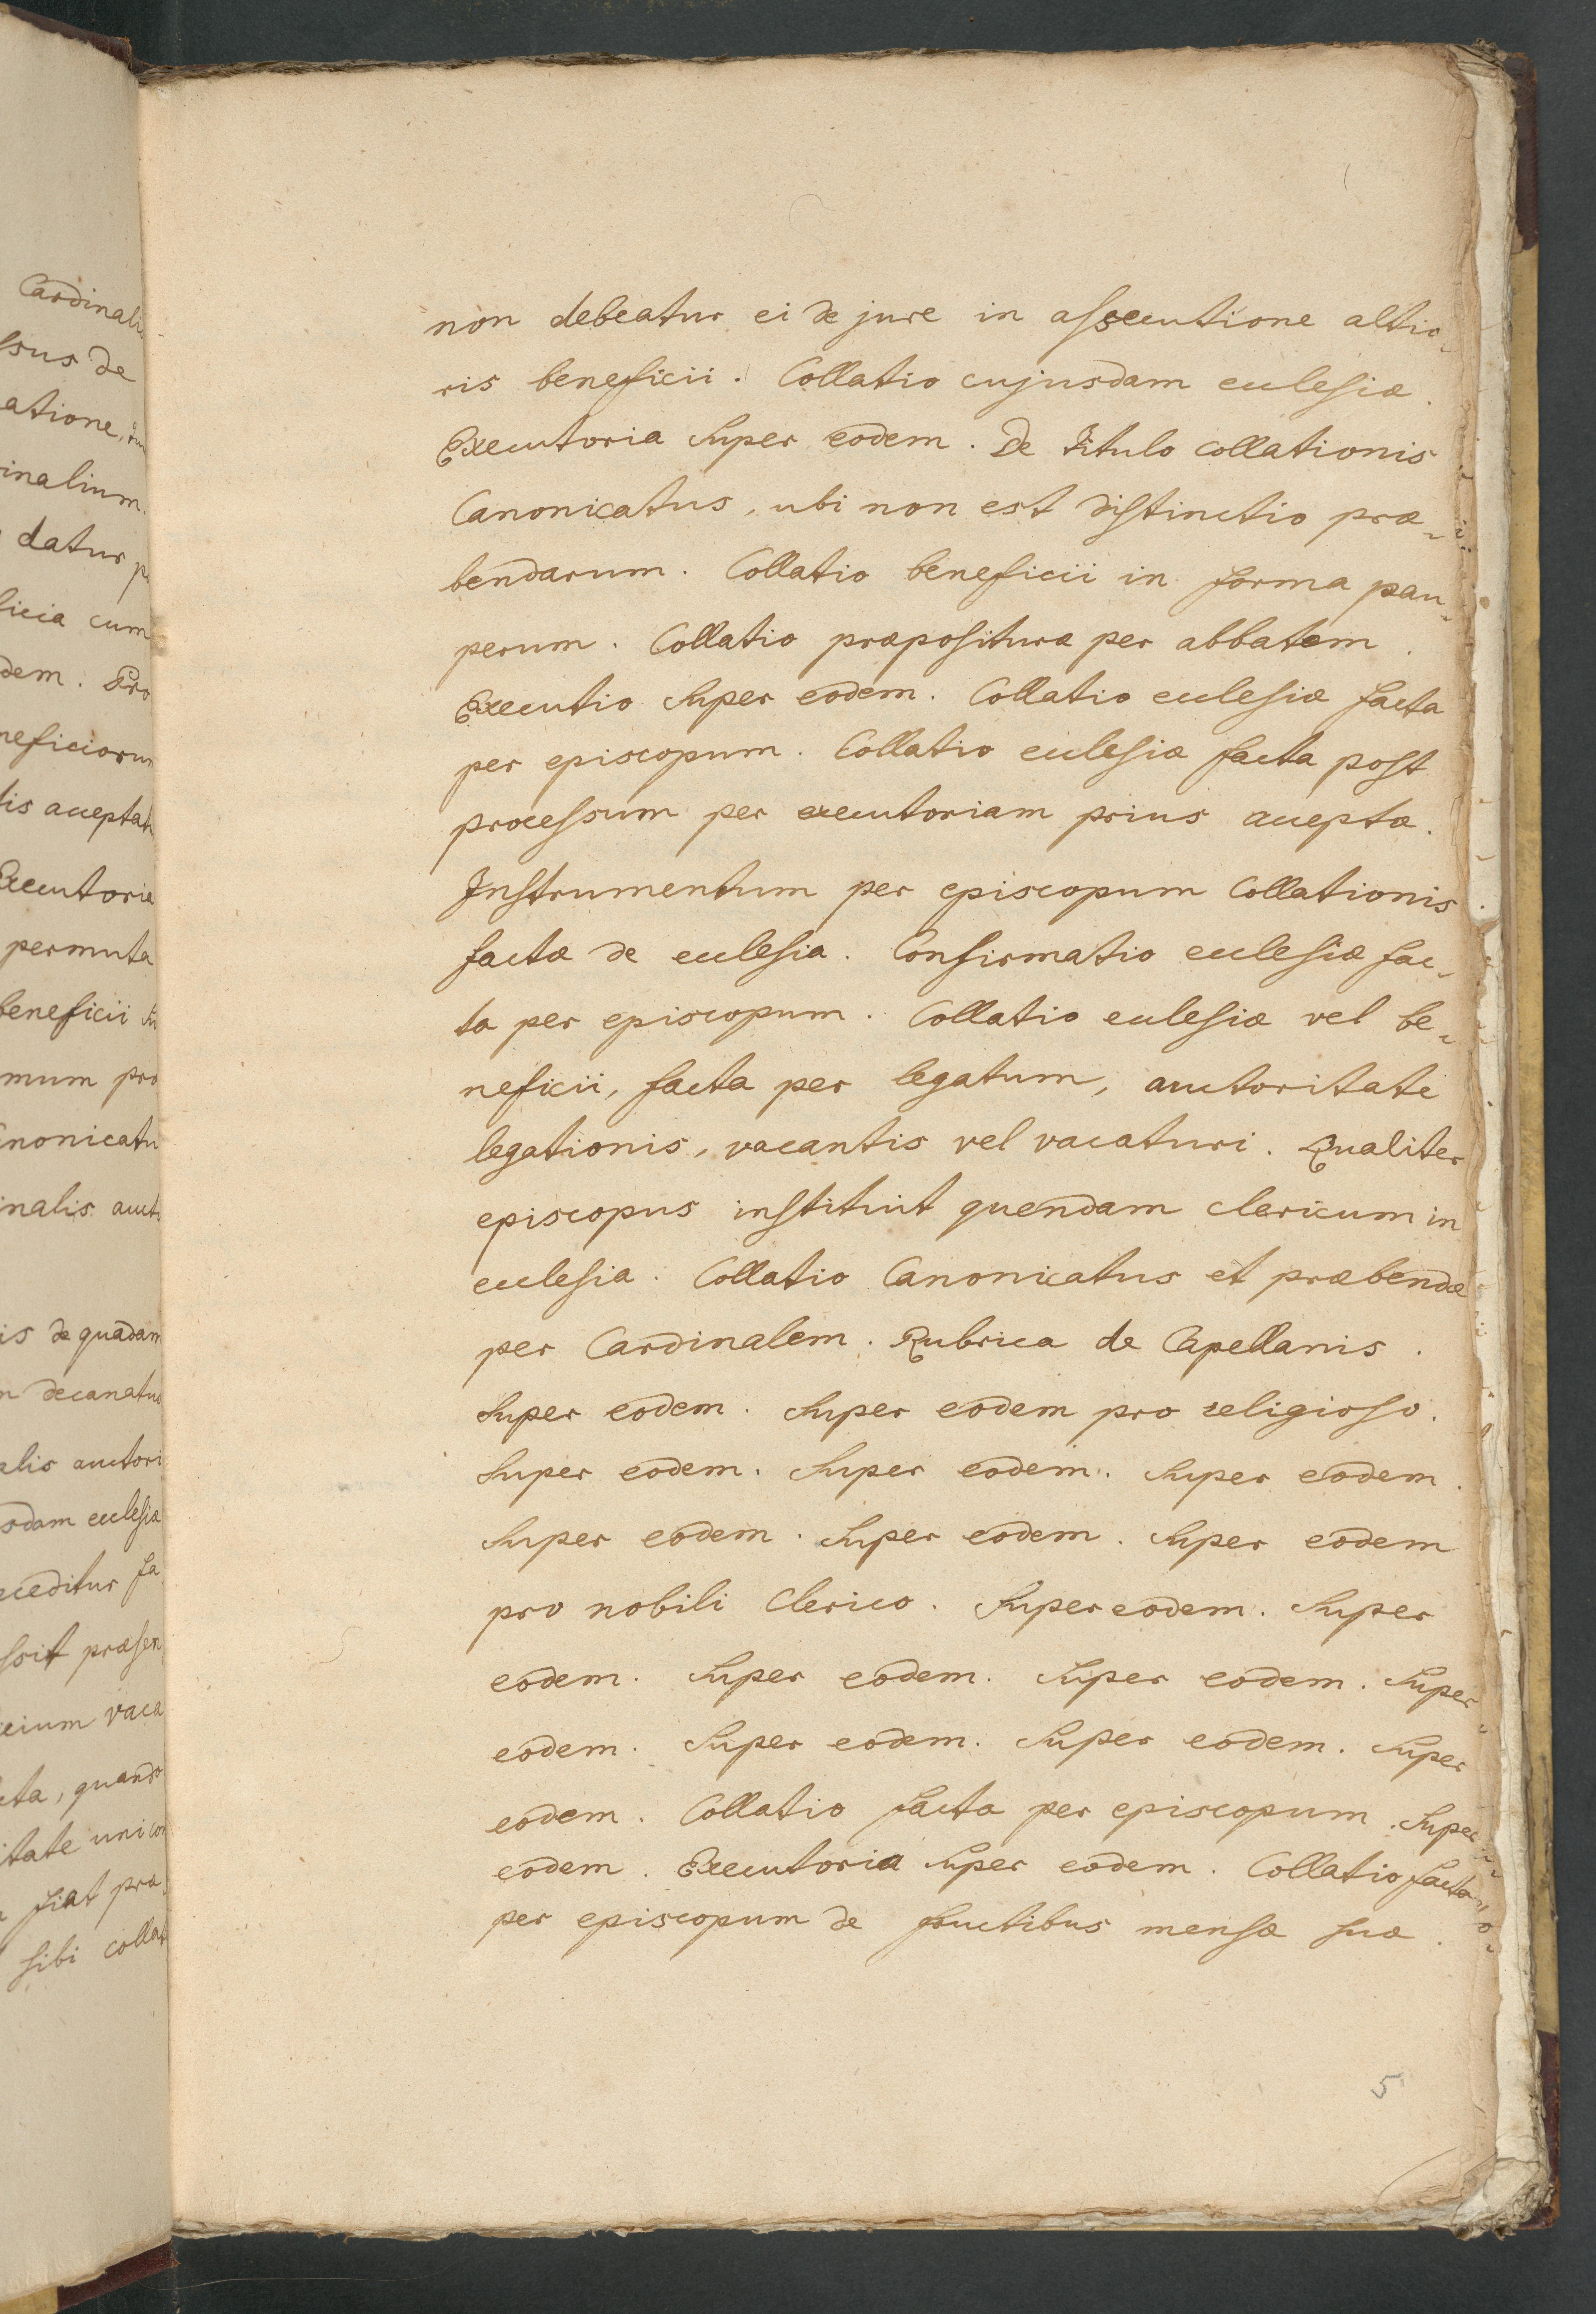 Cardinalis
ssus de
atione, dum
inalium.
datur p
ficia cum
dem. Pro
neficiorum
lis acceptat
Executoria
permuta
beneficii su
mum pro
anonicatu
inalis aucto
is de quadam
n decanatus
alis auctori
sdam ecclesiæ
ceditur fa
ssit præsen
icium vaca
cta, quando
itate uni con
fiat præ
sibi collat
non debeatur ei de jure in assecutione altio-
ris beneficii. Collatio cujusdam ecclesiæ.
Executoria super eodem. De Titulo collationis
Canonicatus, ubi non est distinctio præ-
bendarum. Collatio beneficii in forma pau-
perum. Collatio præpositura per abbatem.
Executio super eodem. Collatio ecclesiæ facta
per episcopum. Collatio ecclesiæ facta post
processum per executoriam prius acceptæ.
Instrumentum per episcopum Collationis
factæ de ecclesia. Confirmatio ecclesiæ fac-
ta per episcopum. Collatio ecclesiæ vel be-
neficii, facta per legatum, auctoritate
legationis, vacantis vel vacaturi. Qualiter
episcopus instituit quendam clericum in
ecclesia. Collatio Canonicatus et præbendæ
per Cardinalem. Rubrica de Capellanis.
Super eodem. Super eodem pro religioso.
Super eodem. Super eodem. Super eodem.
Super eodem. Super eodem. Super eodem
pro nobili Clerico. Super eodem. Super
eodem. Super eodem. Super eodem. Super
eodem. Super eodem. Super eodem. Super
eodem. Collatio facta per episcopum. Super
eodem. Executoria super eodem. Collatio facta
per episcopum de fructibus mensæ suæ.
5